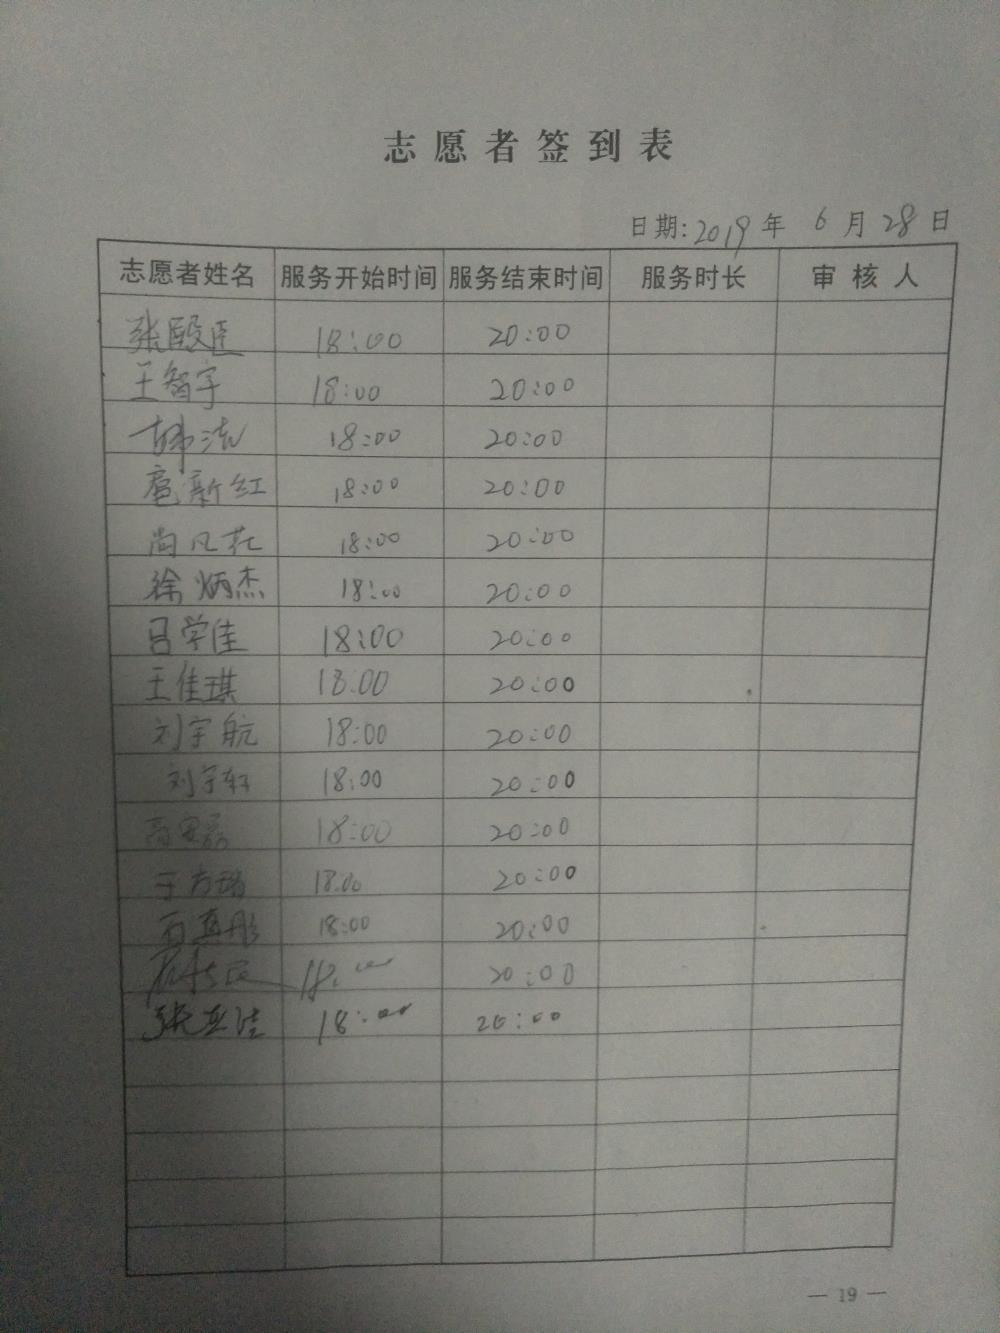 志愿者签到表
日期:2019年 6月28日
志愿者姓名 服务开始时间 服务结束时间 服务时长 审核人
张殿臣 18:00 20:00
王智宇 18:00 20:00
18:00 20:00
扈新红 18:00 20:00
尚凡花 18:00 20:00
徐炳杰 18:00 20:00
吕学佳 18:00 20:00
王佳琪 18:00 20:00
刘宇航 18:00 20:00
刘宇轩 18:00 20:00
18:00 20:00
于方瑞 18:00 20:00
石真彤 18:00 20:00
18:00 20:00
张亚洁 18:00 20:00
— 19 —